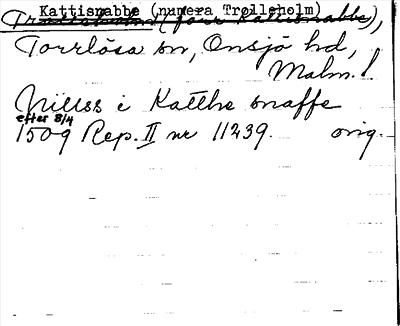 Kattisnabbe (numera Trolleholm)
Trolleholm (förr Kattisnabbe),
Torrlösa sn, Onsjö hd,
Malm. l.
Nielss i Katthe snaffe
efter 8/4
1509 Rep. II nr 11239. orig.